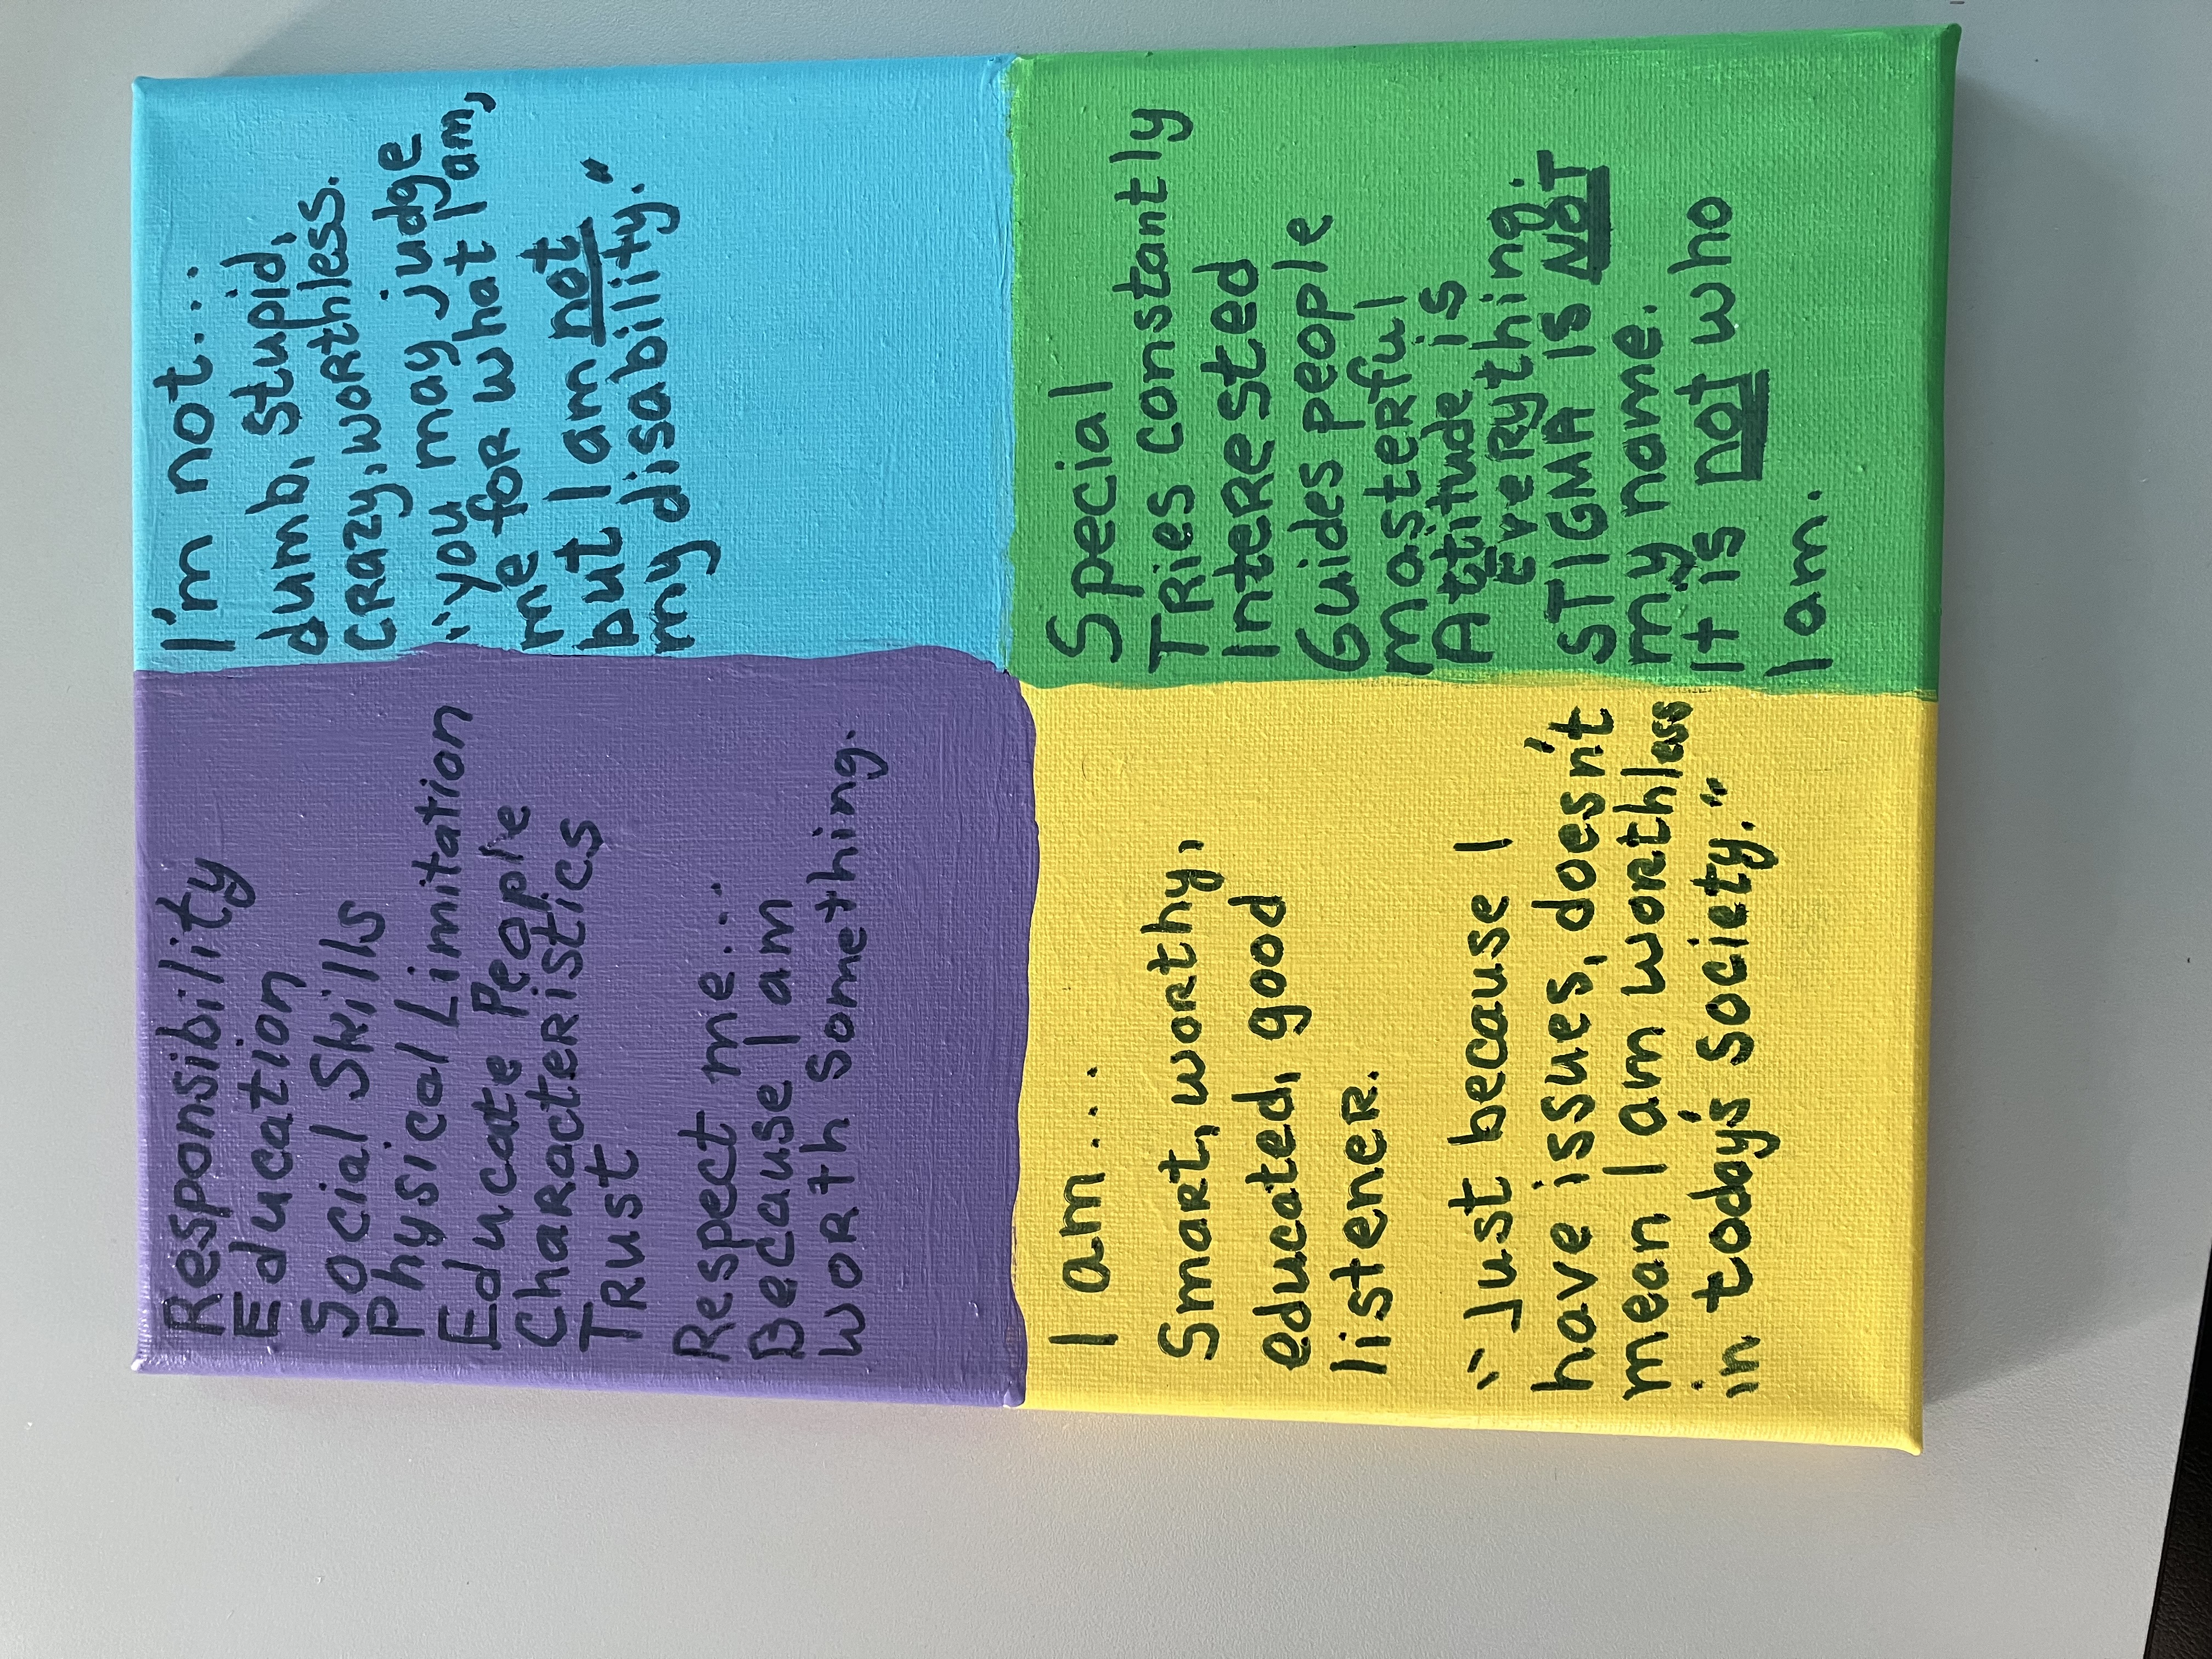 Responsibility
Education
Social Skills
Physical Limitation
Educate People
Characteristics
Trust
Respect me...
Because I am
worth something.
I'm not...
dumb, stupid,
crazy, worthless.
"you may judge
me for what I am,
but I am not
my disability."
I am...
Smart, worthy,
educated, good
listener.
"Just because I
have issues, doesn't
mean I am worthless
in today's society."
Special
Tries constantly
Interested
Guides people
masterful
Attitude is
Everything.
STIGMA IS NOT
my name.
It is not who
I am.